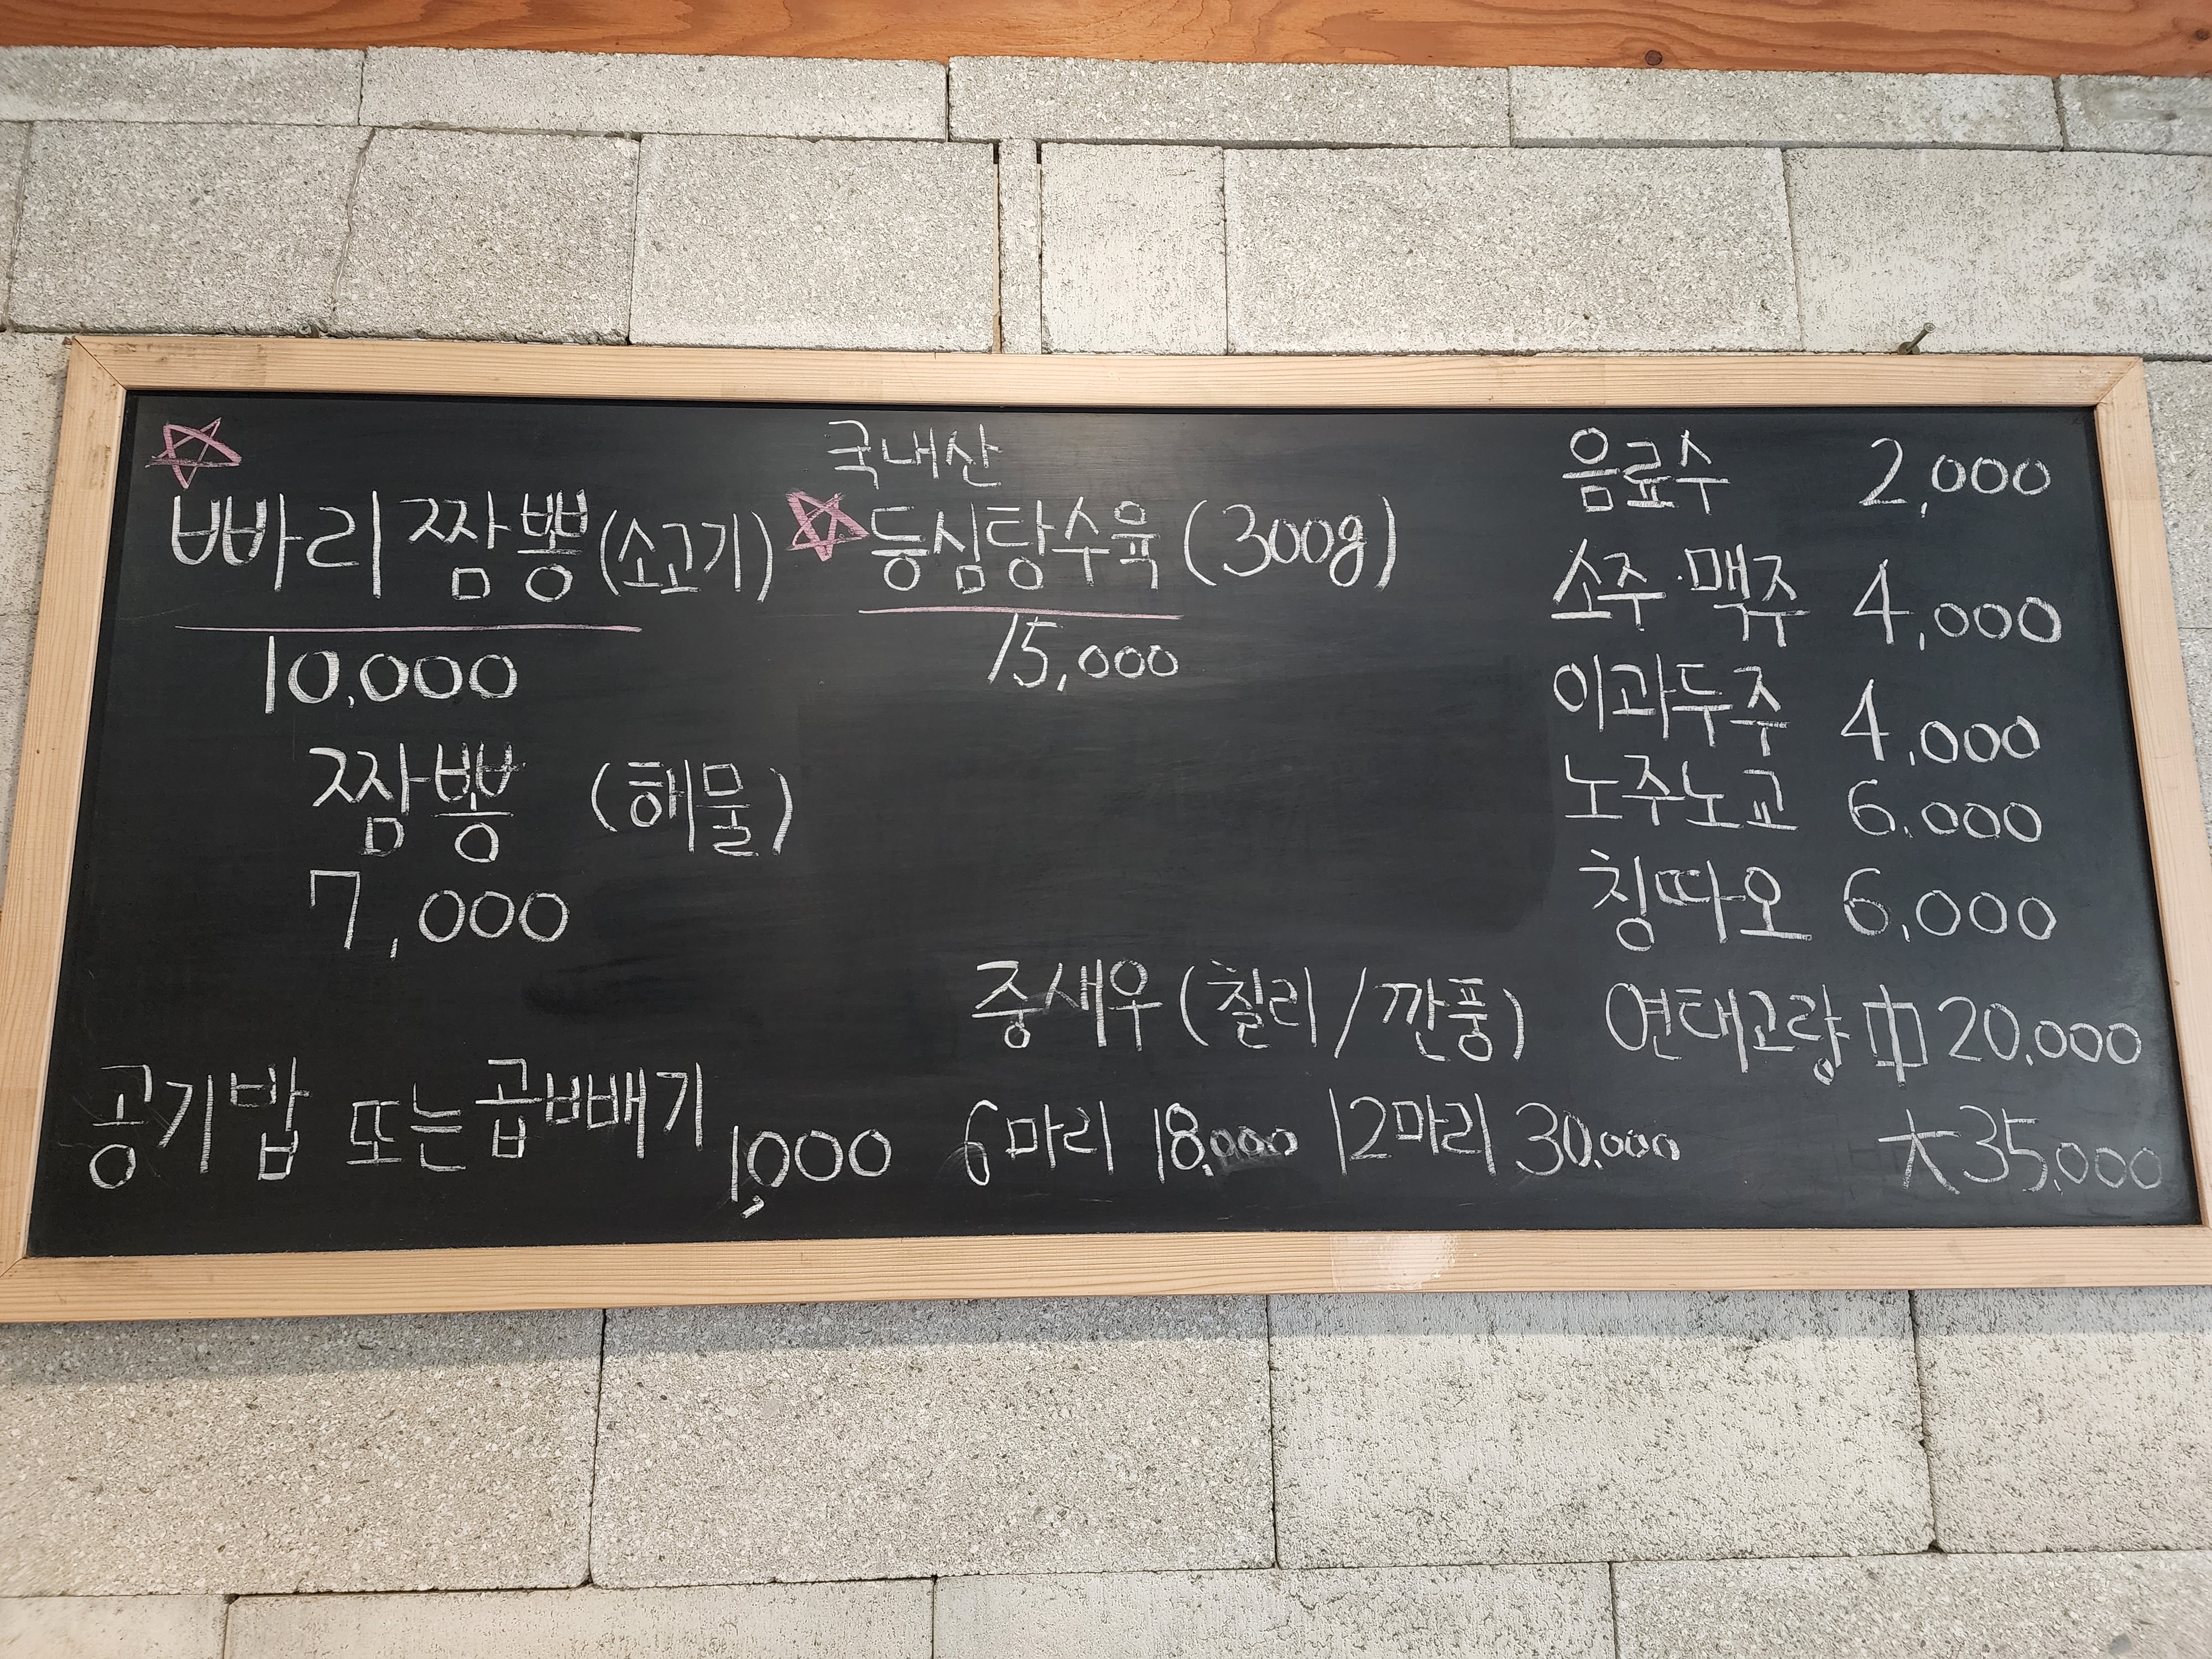 빠리짬뽕(소고기)
10,000
짬뽕 (해물)
7,000
공기밥 또는 곱빼기 1,000
국내산
등심탕수육 (300g)
15,000
중새우 (칠리/깐풍)
6마리 18,000 12마리 30,000
음료수 2,000
소주·맥주 4,000
이과두주 4,000
노주노교 6,000
칭따오 6,000
연태고량 中 20,000
大 35,000